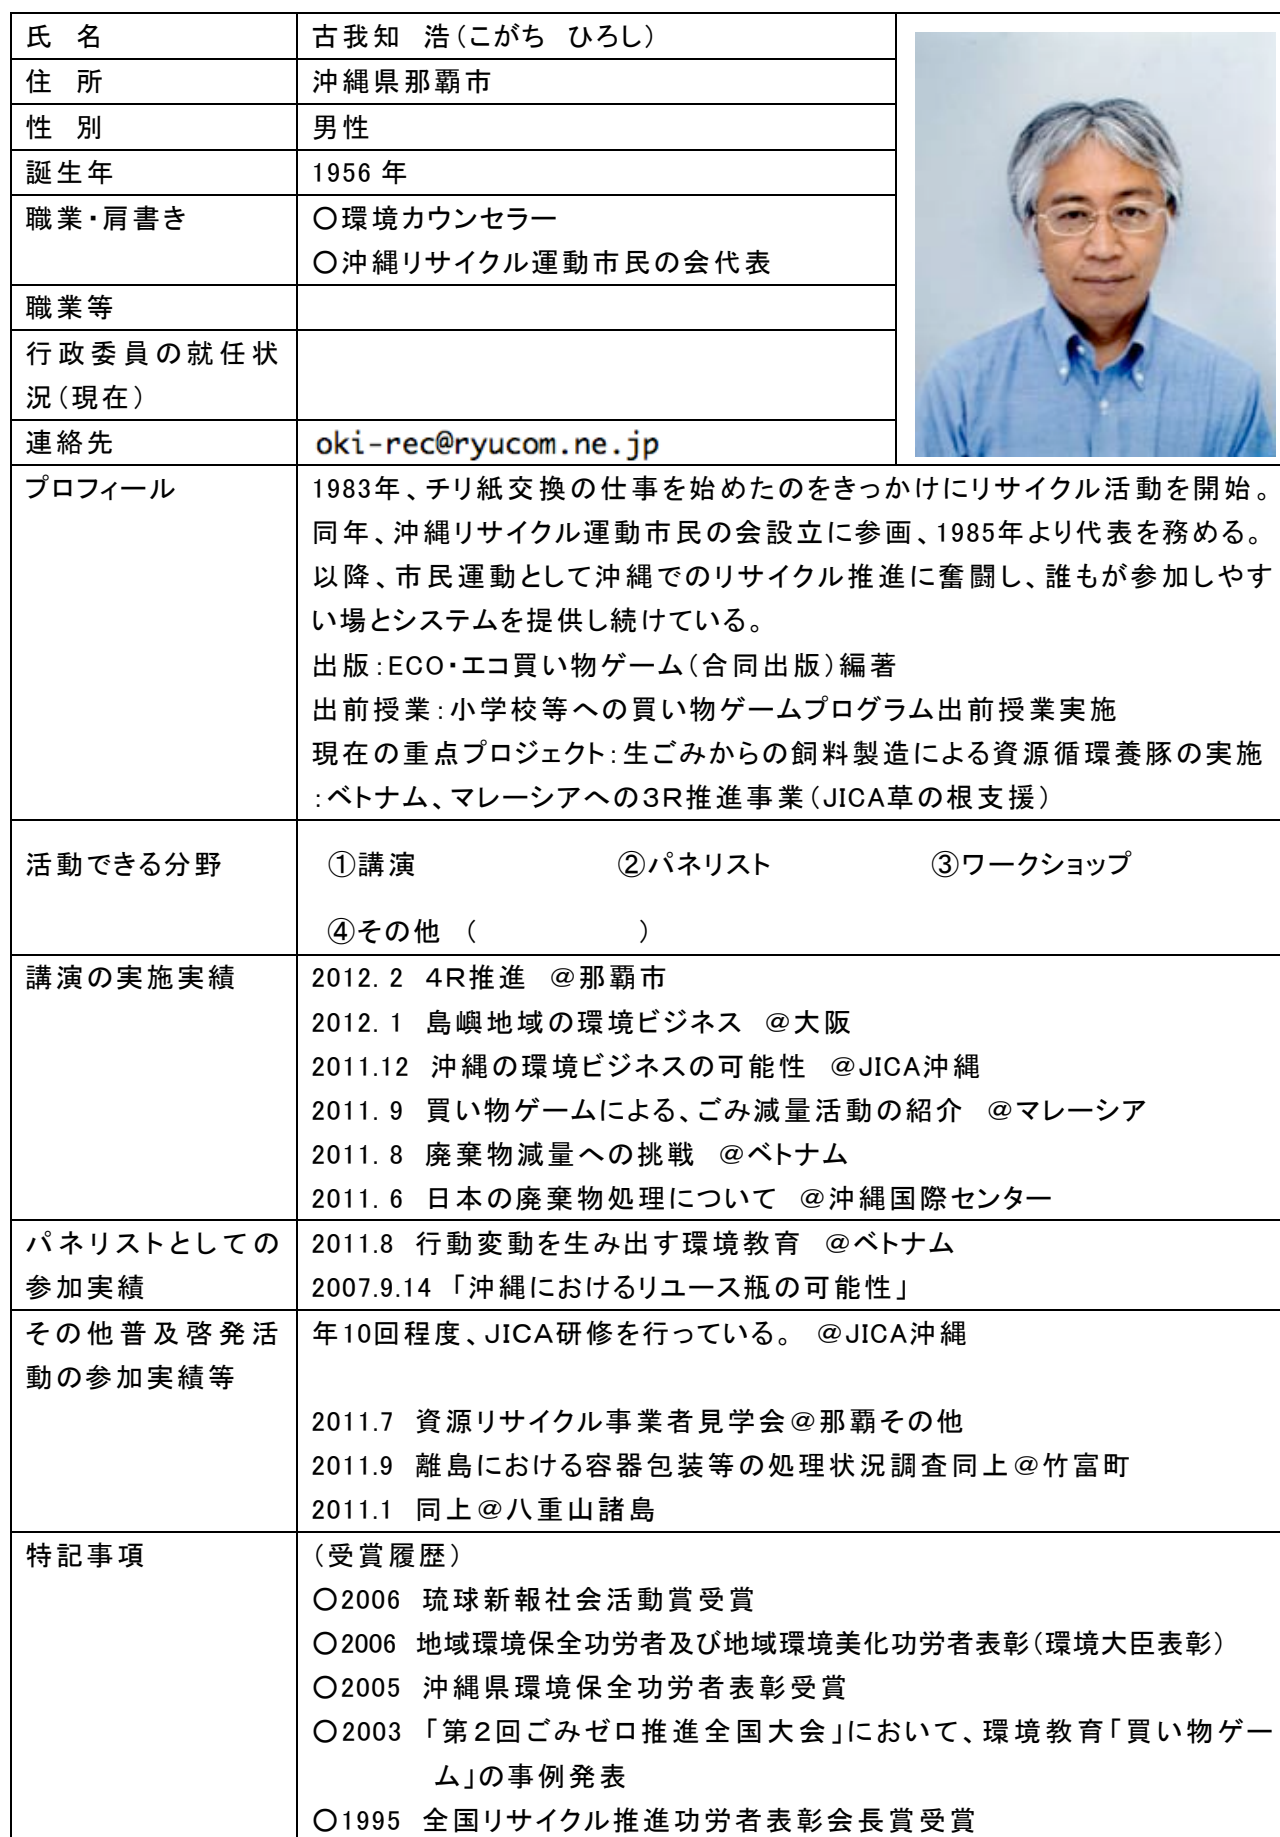 氏 名
古我知 浩(こがち ひろし)
住 所
沖縄県那覇市
性 別
男性
誕生年
1956 年
職業・肩書き
〇環境カウンセラー
〇沖縄リサイクル運動市民の会代表
職業等
行政委員の就任状
況(現在)
連絡先
oki-rec@ryucom.ne.jp
プロフィール
1983年、チリ紙交換の仕事を始めたのをきっかけにリサイクル活動を開始。
同年、沖縄リサイクル運動市民の会設立に参画、1985年より代表を務める。
以降、市民運動として沖縄でのリサイクル推進に奮闘し、誰もが参加しやす
い場とシステムを提供し続けている。
出版:ECO・エコ買い物ゲーム(合同出版)編著
出前授業:小学校等への買い物ゲームプログラム出前授業実施
現在の重点プロジェクト:生ごみからの飼料製造による資源循環養豚の実施
:ベトナム、マレーシアへの3R推進事業(JICA草の根支援)
活動できる分野
①講演 ②パネリスト ③ワークショップ
④その他 ( )
講演の実施実績
2012. 2 4R推進 @那覇市
2012. 1 島嶼地域の環境ビジネス @大阪
2011.12 沖縄の環境ビジネスの可能性 @JICA沖縄
2011. 9 買い物ゲームによる、ごみ減量活動の紹介 @マレーシア
2011. 8 廃棄物減量への挑戦 @ベトナム
2011. 6 日本の廃棄物処理について @沖縄国際センター
パネリストとしての
参加実績
2011.8 行動変動を生み出す環境教育 @ベトナム
2007.9.14 「沖縄におけるリユース瓶の可能性」
その他普及啓発活
動の参加実績等
年10回程度、JICA研修を行っている。 @JICA沖縄
2011.7 資源リサイクル事業者見学会@那覇その他
2011.9 離島における容器包装等の処理状況調査同上@竹富町
2011.1 同上@八重山諸島
特記事項
(受賞履歴)
〇2006 琉球新報社会活動賞受賞
〇2006 地域環境保全功労者及び地域環境美化功労者表彰(環境大臣表彰)
〇2005 沖縄県環境保全功労者表彰受賞
〇2003 「第2回ごみゼロ推進全国大会」において、環境教育「買い物ゲー
ム」の事例発表
〇1995 全国リサイクル推進功労者表彰会長賞受賞